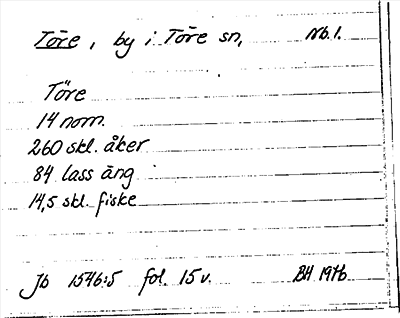 Töre, by i Töre sn, Nb.l.
Töre
14 nom.
260 skl. åker
84 lass äng
14,5 skl. fiske
Jb 1546:5 fol. 15 v. BH 1976